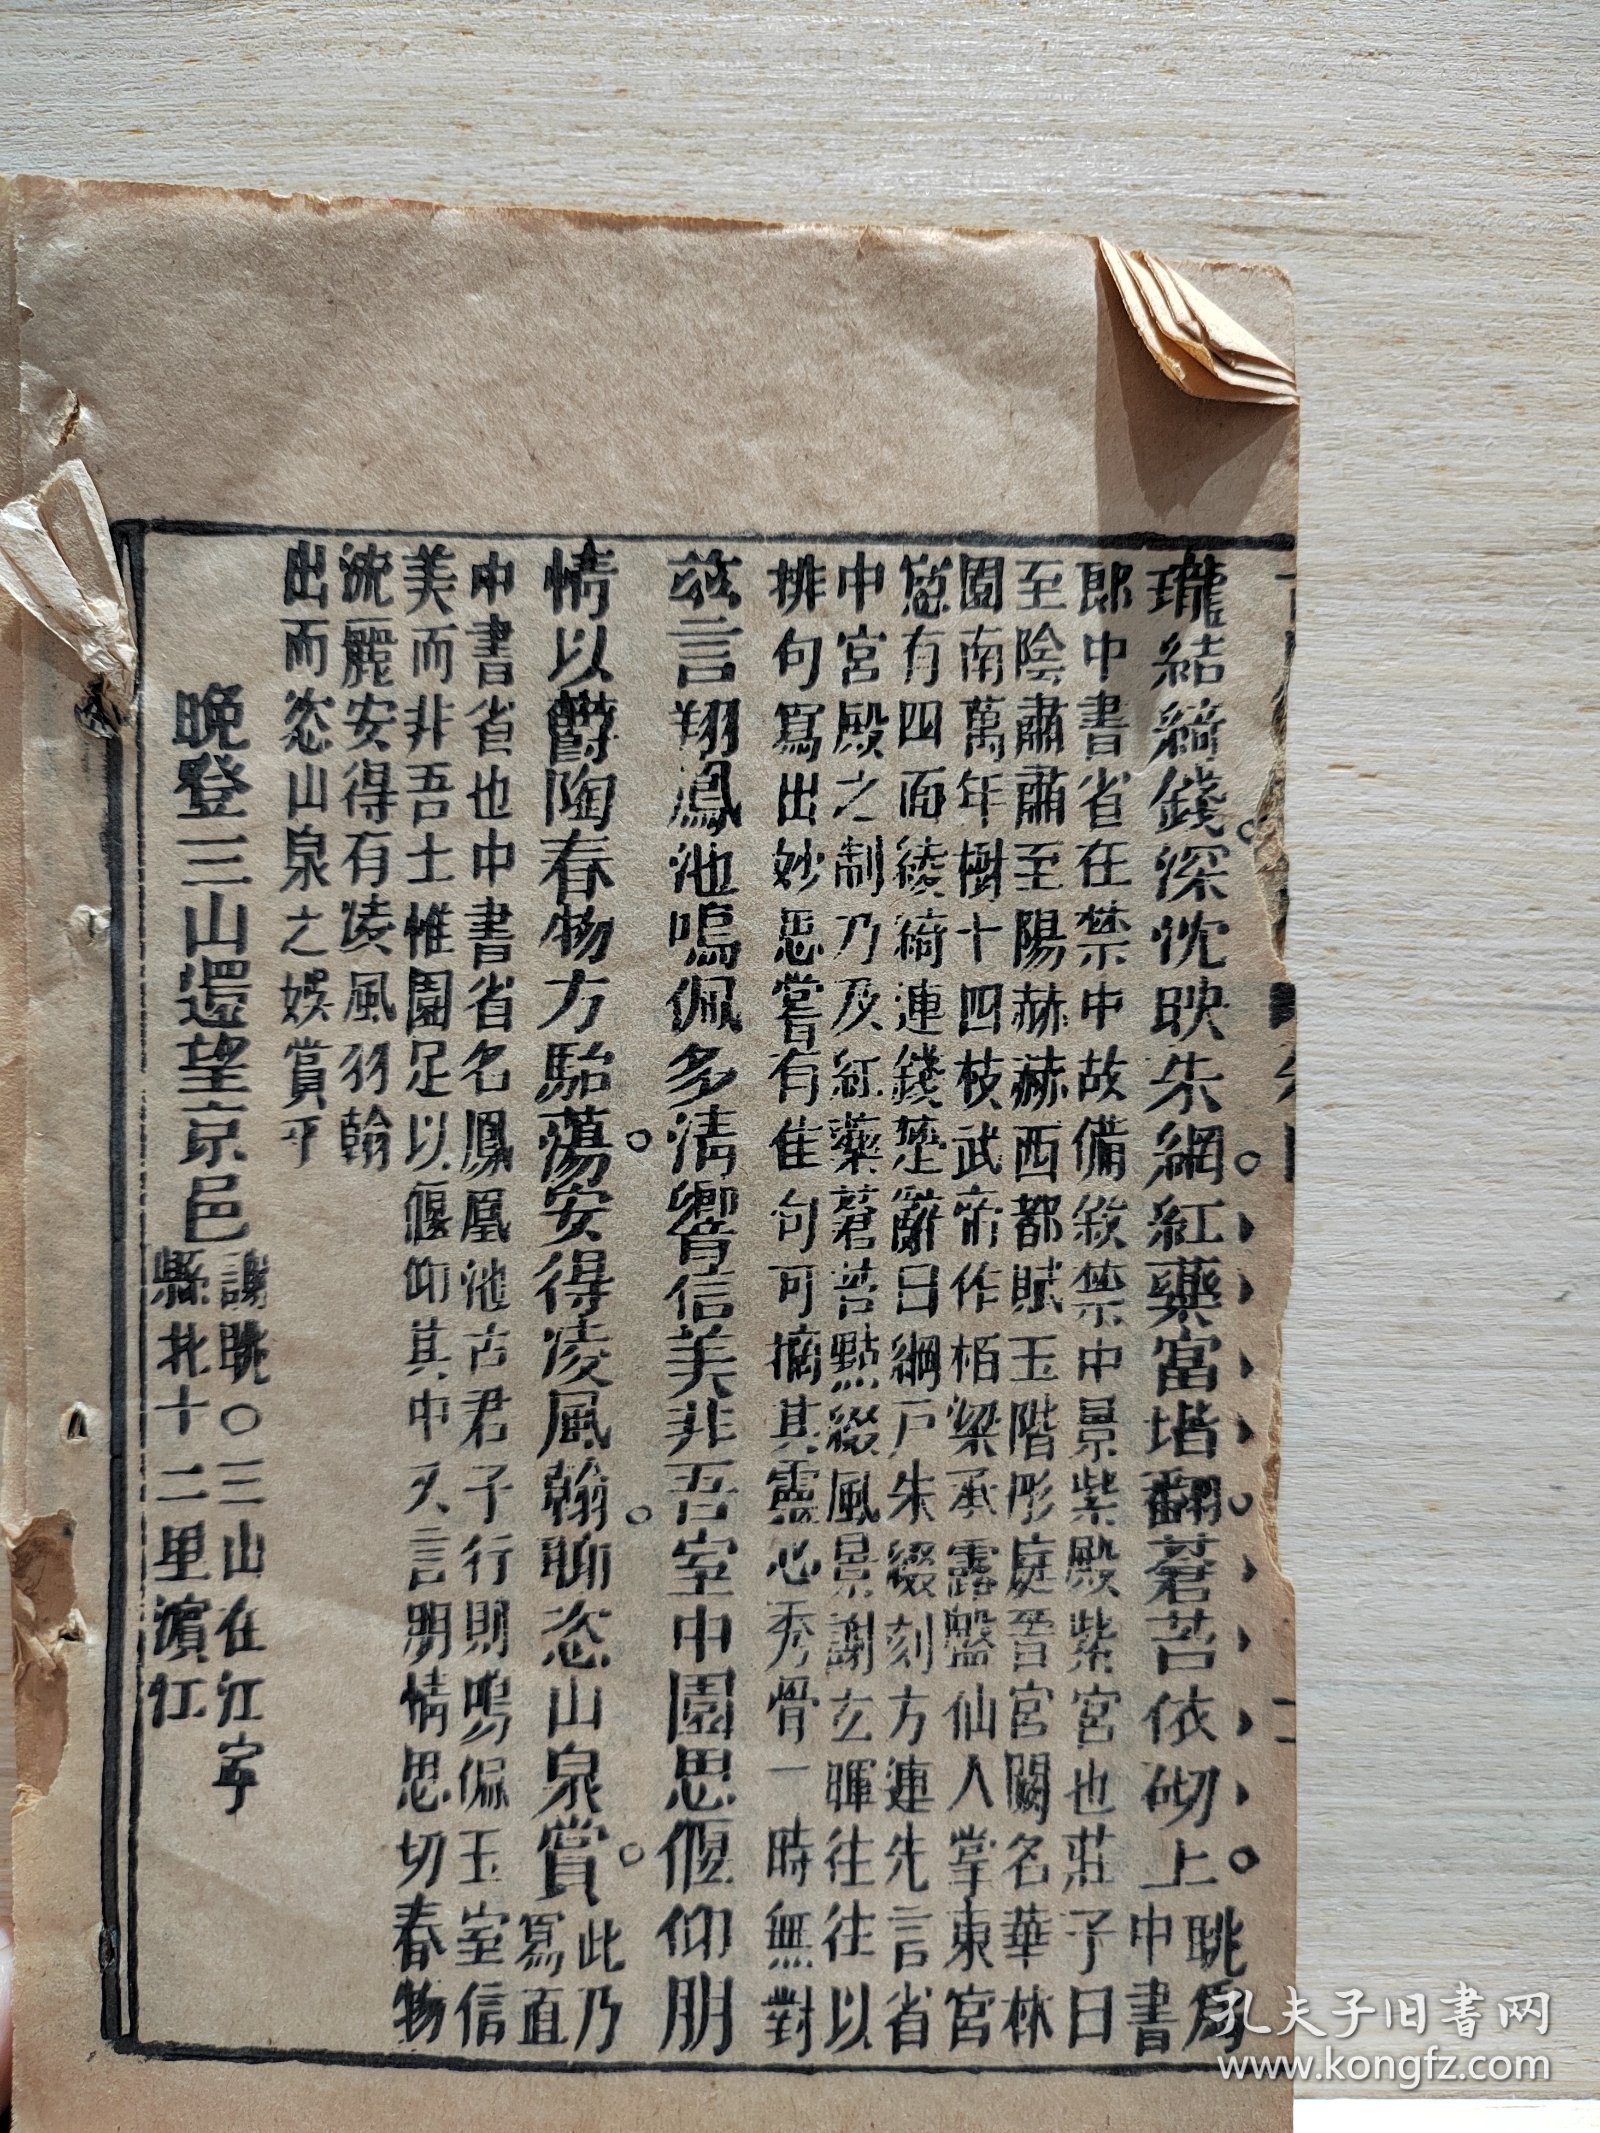 瓏結綺錢深沈映朱網紅藥當堦翻蒼苔依砌上眺爲
中書
郎中書省在禁中故備敘禁中景紫殿紫宮也莊子曰
至陰肅肅至陽赫赫西都賦玉階彤庭晉宮闕名華林
園南萬年樹十四枝武帝作栢梁承露盤仙人掌東宮
窗有四面綾綺連錢楚辭曰網戶朱綴刻方連先言省
中宮殿之制乃及紅藥蒼苔點綴風景謝玄暉往往以
排句寫出妙思嘗有佳句可摘其靈心秀骨一時無對
茲言翔鳳池鳴佩多清響信美非吾室中園思偃仰朋
情以鬱陶春物方駘蕩安得凌風翰聊恣山泉賞此乃
寫直
中書省也中書省名鳳凰池古君子行則鳴佩玉室信
美而非吾土惟園足以偃仰其中又言朋情思切春物
流麗安得有凌風羽翰
出而恣山泉之娛賞乎
晚登三山還望京邑謝眺○三山在江寧
縣北十二里濱江
孔夫子旧书网
www.kongfz.com